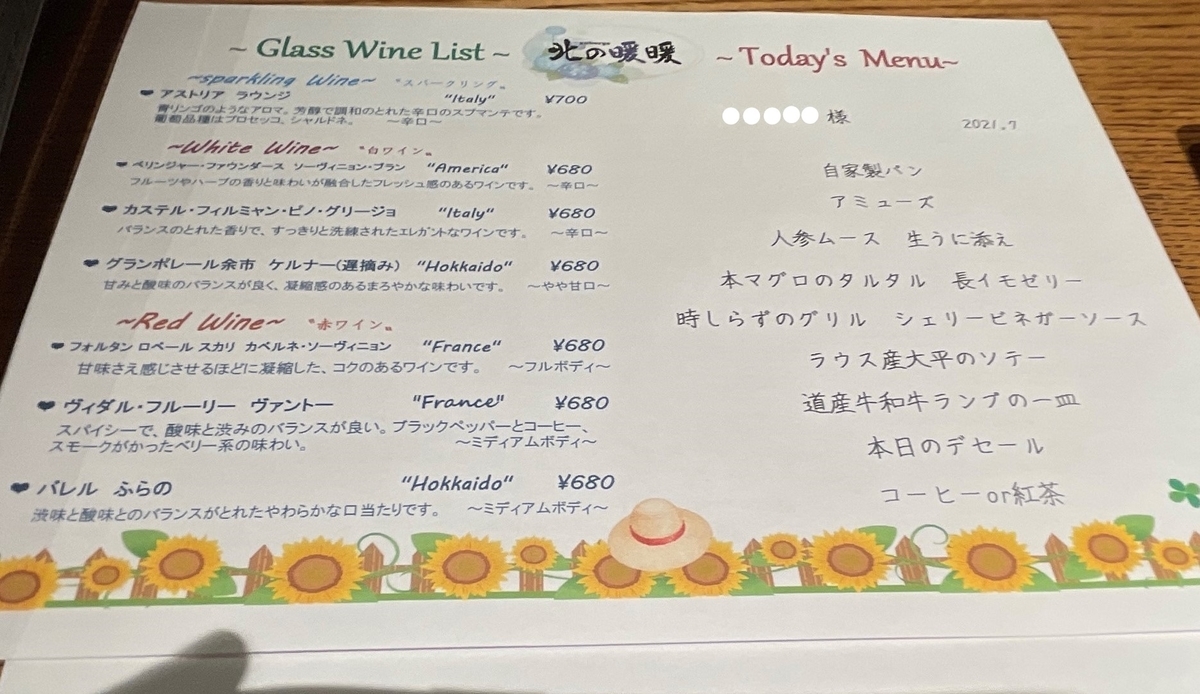 ~ Glass Wine List ~
北の暖暖
~ Today's Menu~
~sparkling Wine~ 〝スパークリング〟
❤ アストリア ラウンジ "Italy" ¥700
青リンゴのようなアロマ。芳醇で調和のとれた辛口のスプマンテです。
葡萄品種はプロセッコ、シャルドネ。 ~辛口~
~White Wine~ 〝白ワイン〟
❤ ベリンジャー・ファウンダース ソーヴィニョン・ブラン "America" ¥680
フルーツやハーブの香りと味わいが融合したフレッシュ感のあるワインです。 ~辛口~
❤ カステル・フィルミヤン・ピノ・グリージョ "Italy" ¥680
バランスのとれた香りで、すっきりと洗練されたエレガントなワインです。 ~辛口~
❤ グランポレール余市 ケルナー(遅摘み) "Hokkaido" ¥680
甘みと酸味のバランスが良く、凝縮感のあるまろやかな味わいです。 ~やや甘口~
~Red Wine~ 〝赤ワイン〟
❤ フォルタン ロベール スカリ カベルネ・ソーヴィニョン "France" ¥680
甘味さえ感じさせるほどに凝縮した、コクのあるワインです。 ~フルボディ~
❤ ヴィダル・フルーリー ヴァントー "France" ¥680
スパイシーで、酸味と渋みのバランスが良い。ブラックペッパーとコーヒー、
スモークがかったベリー系の味わい。 ~ミディアムボディ~
❤ バレル ふらの "Hokkaido" ¥680
渋味と酸味とのバランスがとれたやわらかな口当たりです。 ~ミディアムボディ~
様
2021.7
自家製パン
アミューズ
人参ムース 生うに添え
本マグロのタルタル 長イモゼリー
時しらずのグリル シェリービネガーソース
ラウス産大平のソテー
道産牛和牛ランプの一皿
本日のデセール
コーヒーor紅茶